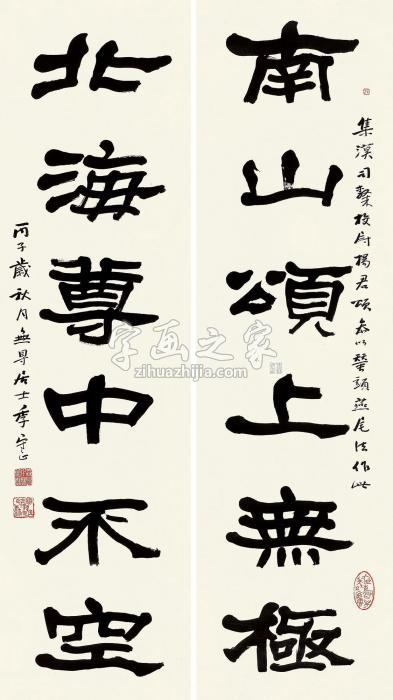 南山頌上無極
集漢司隸校尉楊君頌參以蠶頭燕尾法作此
北海尊中不空
丙子歲秋月無尋居士季守正
字画之家
zihuazhijia.com